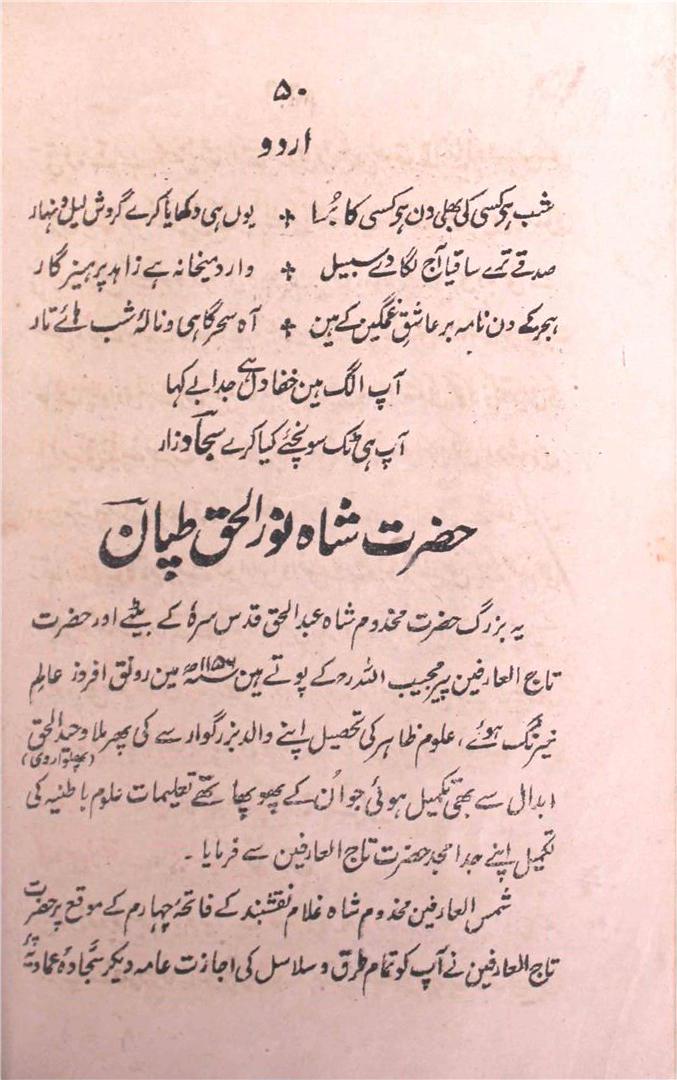 ۵۰
اردو
شب ہو کسی کی بھلی دن ہو کسی کا بُرا ✣ یوں ہی دکھایا کرے گروش لیل و نہار
صدقے ترے ساقیا آج لگا دے سبیل ✣ وارد میخانہ ہے زاہد پرہیز گار
ہجر کے دن نامہ بر عاشق غمگین کے ہین ✣ آہ سحر گاہی و نالۂ شب ہائے تار
آپ الگ ہین خفا دل ہے جدا بے کہا
آپ ہی ٹک سونچئے کیا کرے سجاؔد زار
حضرت شاہ نور الحق طپاںؔ
یہ بزرگ حضرت مخدوم شاہ عبد الحق قدس سرہٗ کے بیٹے اور حضرت
تاج العارفین پیر مجیب اللہ رح کے پوتے ہین ۱۱۵۶ھ مین رونق افروز عالم
نیرنگ ہوئے، علوم ظاہر کی تحصیل اپنے والد بزرگوار سے کی پھر ملا وحید الحق (پھلواروی)
ابدال سے بھی تکمیل ہوئی جو اُن کے پھوپھا تھے تعلیمات علوم باطنیہ کی
تکمیل اپنے جد امجد حضرت تاج العارفین سے فرمایا ۔
شمس العارفین مخدوم شاہ غلام نقشبند کے فاتحۂ چہارم کے موقع پر حضرت
تاج العارفین نے آپ کو تمام طرق و سلاسل کی اجازت عامہ دیکر سجادۂ عمادیہ پر